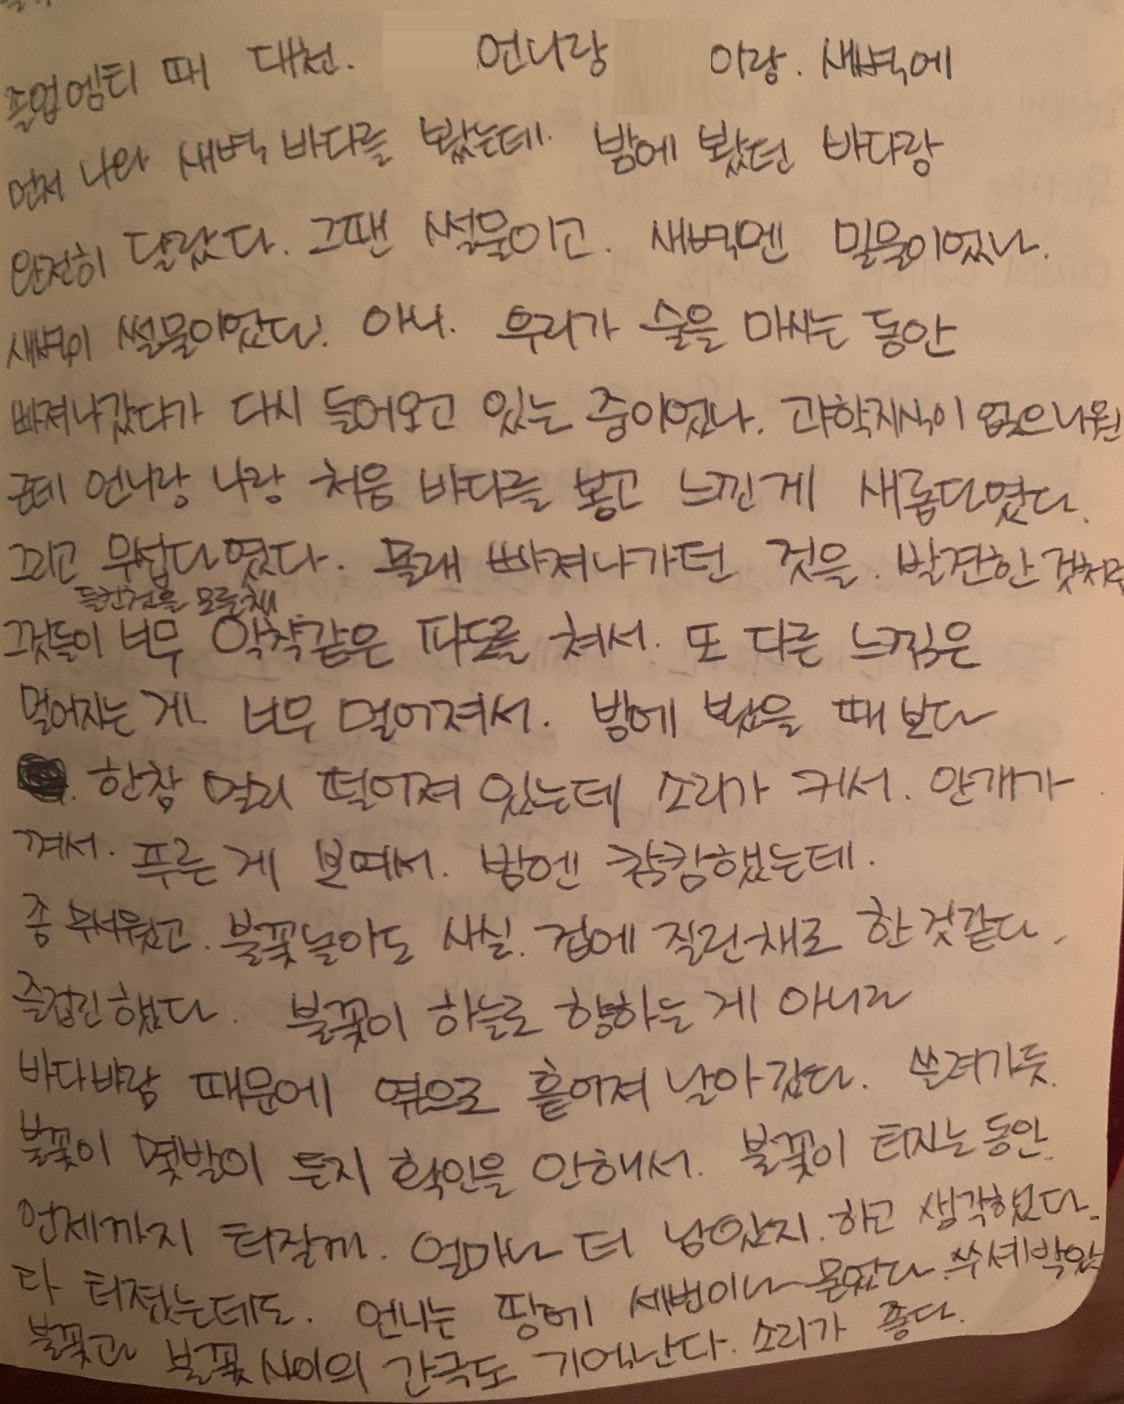 졸업엠티 때 대천. 언니랑 이랑. 새벽에
먼저 나와 새벽 바다를 봤는데. 밤에 봤던 바다랑
완전히 달랐다. 그땐 썰물이고. 새벽엔 밀물이었나.
새벽이 썰물이었다. 아니. 우리가 술을 마시는 동안
빠져나갔다가 다시 들어오고 있는 중이었나. 과학지식이 없으니원
근데 언니랑 나랑 처음 바다를 보고 느낀게 새롭다였다.
그리고 무섭다였다. 몰래 빠져나가던 것을. 발견한 것처럼
들킨것을 모른채
그것들이 너무 악착같은 파도를 쳐서. 또 다른 느낌은
멀어지는 게. 너무 멀어져서. 밤에 봤을 때 보다
한참 멀리 떨어져 있는데 소리가 커서. 안개가
껴서. 푸른 게 보여서. 밤엔 캄캄했는데.
좀 무서웠고. 불꽃놀이도 사실. 겁에 질린 채로 한 것같다.
즐겁긴 했다. 불꽃이 하늘로 향하는 게 아니라
바다바람 때문에 옆으로 흩어져 날아갔다. 쓸려가듯.
불꽃이 몇발이 든지 확인을 안해서. 불꽃이 터지는 동안.
언제까지 터질까. 얼마나 더 남았지. 하고 생각했다.
다 터졌는데도. 언니는 땅에 세번이나 쑤셔박았
불꽃과 불꽃 사이의 간극도 기억난다. 소리가 좋다.